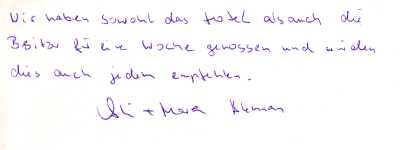 Wir haben sowohl das Hotel als auch die
Besitzer für eine Woche genossen und würden
dies auch jedem empfehlen.
+